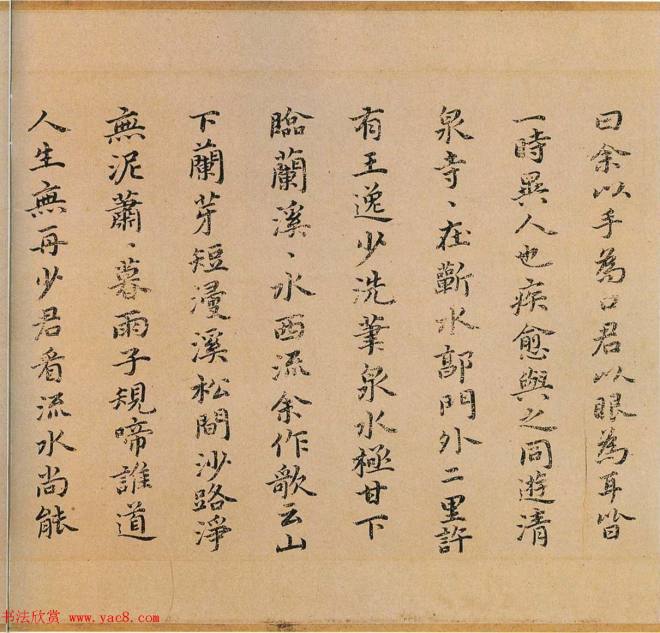 曰余以手為口君以眼為耳皆
一時異人也疾愈與之同遊清
泉寺〻在蘄水郭門外二里許
有王逸少洗筆泉水極甘下
臨蘭溪〻水西流余作歌云山
下蘭芽短浸溪松間沙路淨
無泥蕭〻暮雨子規啼誰道
人生無再少君看流水尚能
书法欣赏 www.yac8.com